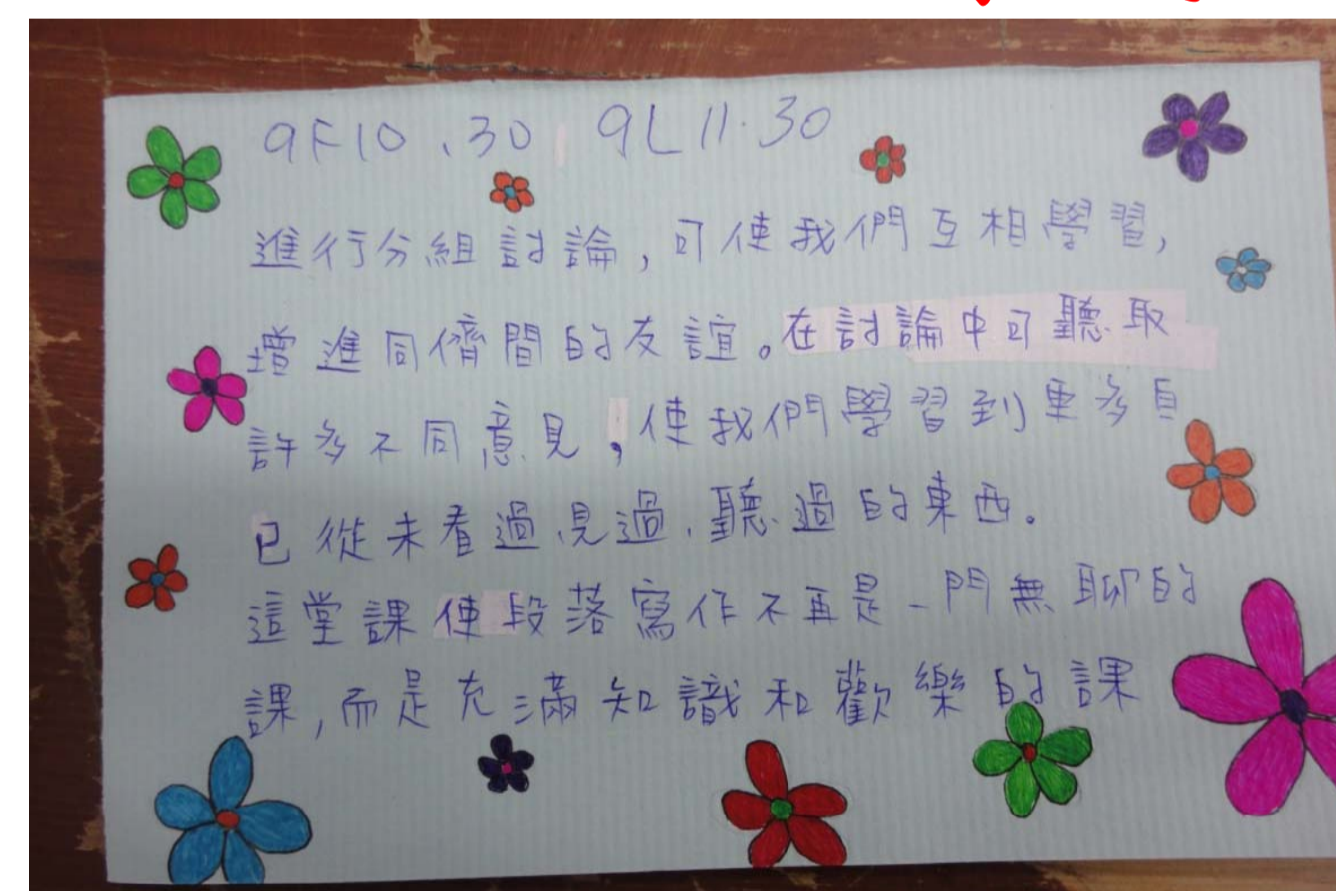 9F10.30 9L11.30
進行分組討論,可使我們互相學習,
增進同儕間的友誼。在討論中可聽取
許多不同意見,使我們學習到更多自
已從未看過、見過、聽過的東西。
這堂課使段落寫作不再是一門無聊的
課,而是充滿知識和歡樂的課